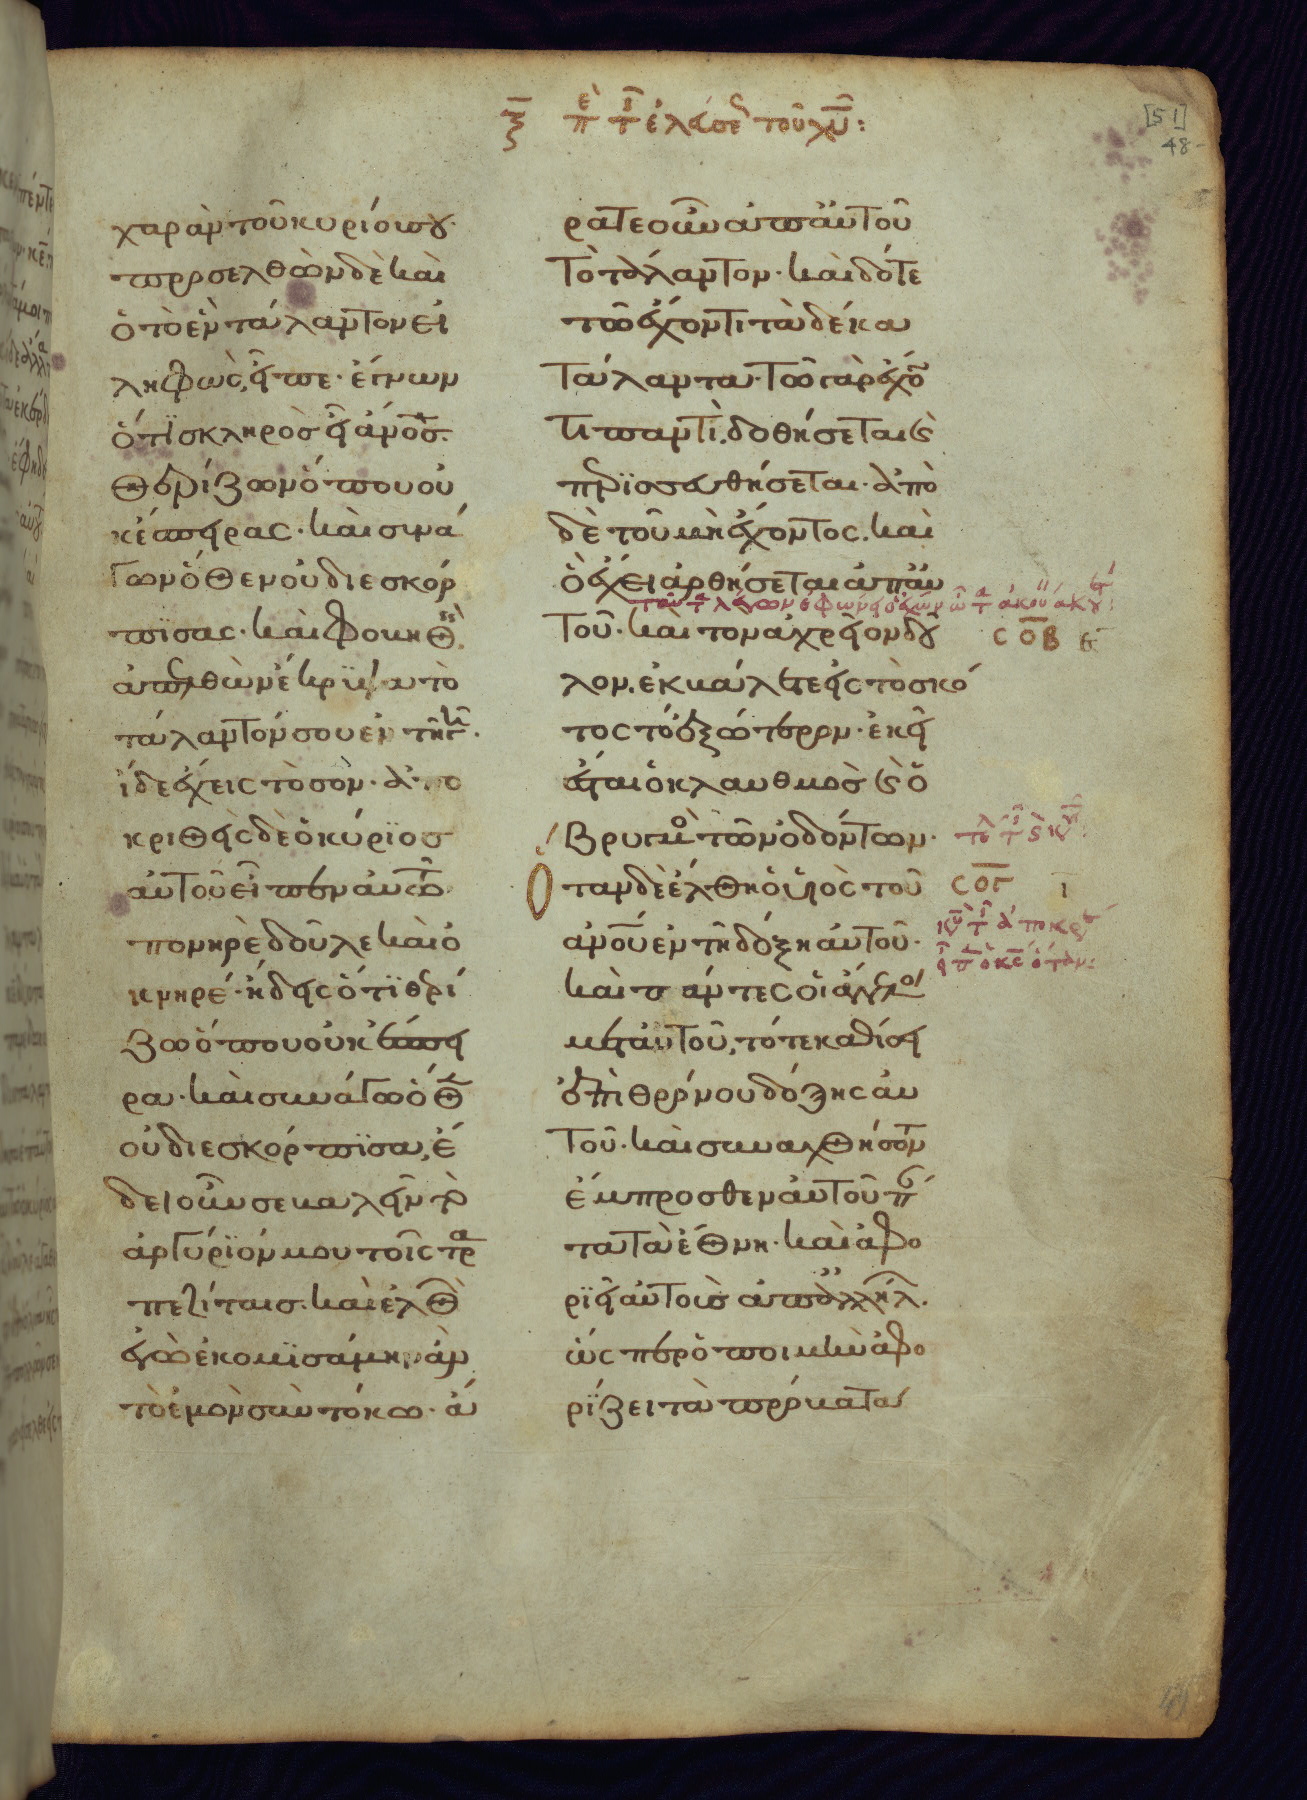 ξ̅ πὲ τῆ ἐλεύσε τοῦ χυ̅:
[51]
48
χαρὰν τοῦ κυρίου σου·
προσελθὼν δὲ καὶ
ὁ τὸ ἓν τάλαντον εἰ
ληφὼς, εἶπε· ἔγνων
ὅτι σκληρὸσ εἶ ἄνο̅σ·
θερίζων ὅπου οὐ
κ ἔσπειρας· καὶ συνά
γων ὅθεν οὐ διεσκόρ
πισας· καὶ φοβηθεὶσ
ἀπελθὼν ἔκρυψα τὸ
τάλαντόν σου ἐν τῆ γῆ·
ἴδε ἔχεις τὸ σόν· ἀπο
κριθεὶς δὲ ὁ κύριοσ
αὐτοῦ εἶπεν αὐτῶ
πονηρὲ δοῦλε καὶ ὀ
κνηρέ· ἤδεις ὅτι θερί
ζω ὅπου οὐκ ἔσπει
ρα· καὶ συνάγω ὅθεν
οὐ διεσκόρπισα, ἔ
δει οὖν σε βαλεῖν τὸ
ἀργύριόν μου τοῖς τρα
πεζίταισ· καὶ ἐλθὼν
ἐγὼ ἐκομισάμην ἂν
τὸ ἐμὸν σὺν τόκω· ἄ
ρατε οὖν ἀπ αὐτοῦ
τὸ τάλαντον· καὶ δότε
τῶ ἔχοντι τὰ δέκα
τάλαντα· τῶ γὰρ ἔχον
τι παντὶ, δοθήσεται καὶ
περισσευθήσεται· ἀπὸ
δὲ τοῦ μὴ ἔχοντος, καὶ
ὃ ἔχει ἀρθήσεται ἀπ αὐ
ταῦτα λέγων ἐφώνει ὁ ἔχων ὦτα ἀκούειν ἀκου:
τοῦ· καὶ τον ἀχρεῖον δοῦ
ϲ ο̅β
λον, ἐκβάλετε εἰς τὸ σκό
τος τὸ ἐξώτερον· ἐκεῖ
ἔσται ὁ κλαυθμοσ καὶ ὁ
βρυγμὸσ τῶν ὀδόντων·
Ὅταν δὲ ἔλθη ὁ υἱὸς τοῦ
ϲο̅γ ι̅
ἀνο̅υ ἐν τῆ δόξη αὐτοῦ·
καὶ πάντες οἱ ἄγγελοι
μετ αὐτοῦ, τότε καθίσει
ἐπὶ θρόνου δόξης αὐ
τοῦ· καὶ συναχθήσονται
ἔμπροσθεν αὐτοῦ πάν
τα τὰ ἔθνη· καὶ ἀφο
ριεῖ αὐτοὺσ ἀπ ἀλλήλων·
ὥςπερ ὁ ποιμὴν ἀφο
ρίζει τὰ πρόβατα